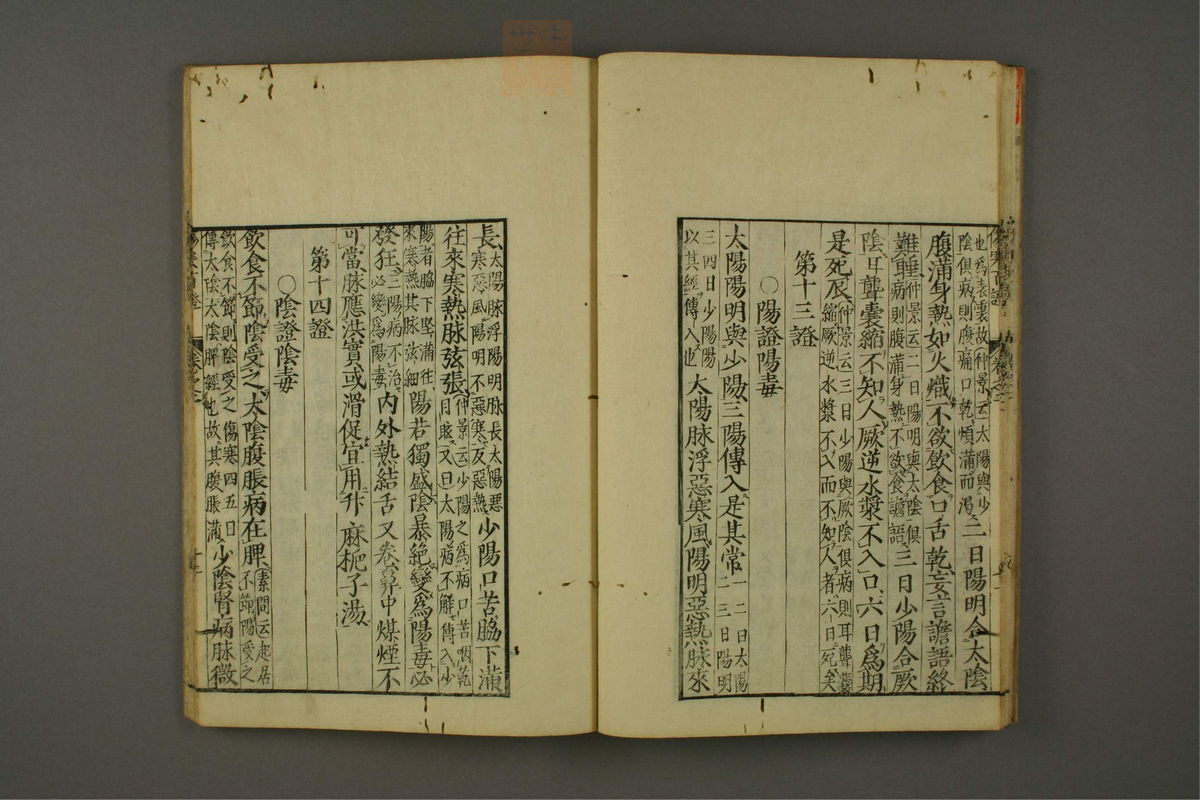 也爲表裏故仲景云太陽與少
陰俱病則腹痛口乾煩滿而渴
二日陽明合太陰
腹滿身熱如火熾不欲飲食口舌乾妄言譫語終
難睡
仲景云二日陽明與太陰俱
病則腹滿身熱不欲食譫語
三日少陽合厥
陰耳聾囊縮不知人厥逆水漿不入口六日爲期
是死灰
仲景云三日少陽與厥陰俱病則耳聾囊
縮厥逆水漿不入而不知人者六日死矣
第十三證
○陽證陽毒
太陽陽明與少陽三陽傳入是其常
一二日太陽
二三日陽明
三四日少陽陽
以其經傳入也
太陽脉浮惡寒風陽明惡熱脉來
長
太陽脉浮陽明脉長太陽惡
寒惡風陽明不惡寒反惡熱
少陽口苦脇下滿
往來寒熱脉弦張
仲景云少陽之爲病口苦咽乾
目眩又曰太陽病不解傳入少
陽者脇下堅滿往
來寒熱其脉弦細
陽若獨盛陰暴絶變爲陽毒必
發狂
三陽病不治
必變爲陽毒
內外熱結舌又卷鼻中煤煙不
可當脉應洪實或滑促宜用升麻梔子湯
第十四證
○陰證陰毒
飲食不節陰受之太陰腹脹病在脾
素問云起居
不節陽受之
飲食不節則陰受之傷寒四五日
傳太陰太陰脾經也故其腹脹滿
少陰腎病脉微